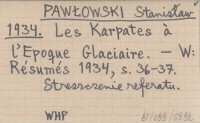 PAWŁOWSKI Stanisław
1934. Les Karpates à
l'Epoque Glaciaire. — W:
Résumés 1934, s. 36-37.
Streszczenie referatu.
WHP